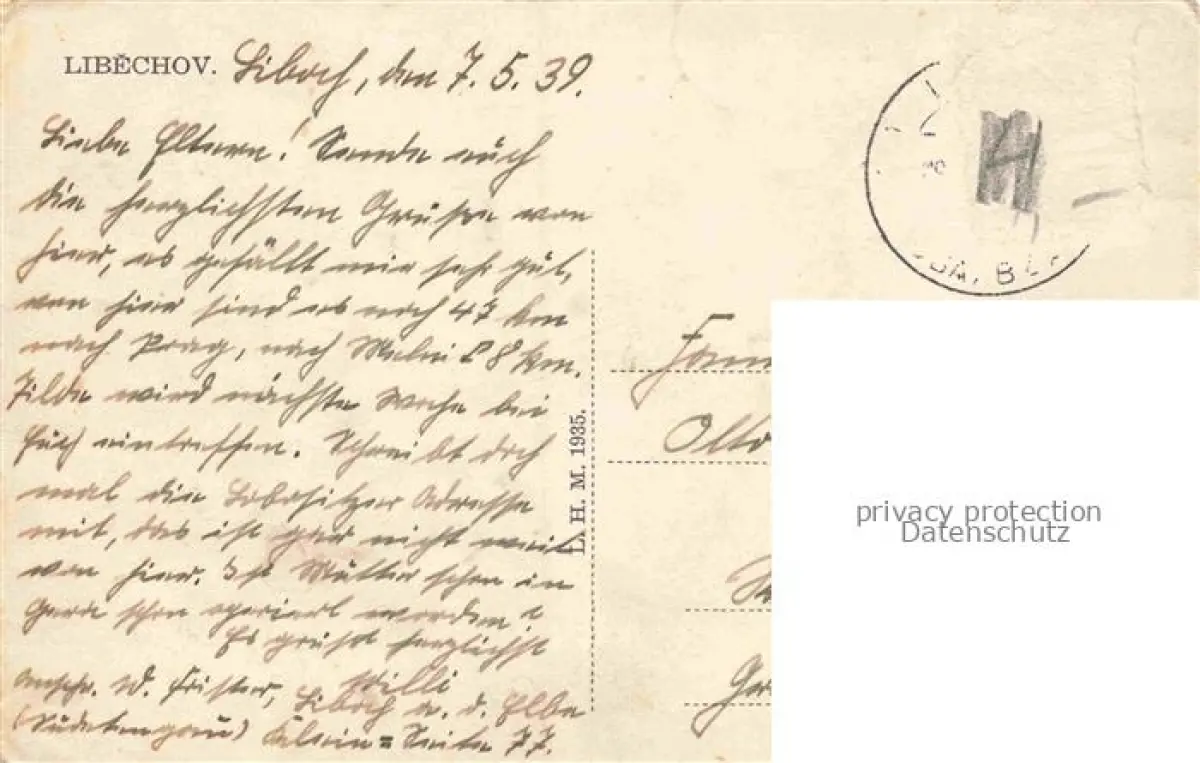 LIBĚCHOV. Liboch, den 7. 5. 39.
Liebe Eltern! Sende euch
die herzlichsten Grüße von
hier, es gefällt mir sehr gut,
von hier sind es noch 47 km
nach Prag, nach Melnik 8 km.
Tilde wird nächste Woche bei
Euch eintreffen. Schreibt doch
mal die Lobositzer Adresse
mit, das ist gar nicht weit
von hier. Ist Mutter schon in
Gera schon operiert worden?
Es grüßt herzlichst
Willi
Anschr. W. Frister, Liboch a. d. Elbe
(Sudetengau) Seite 77.
L. H. M. 1935.
Fam
Otto
Ger
H
privacy protection
Datenschutz